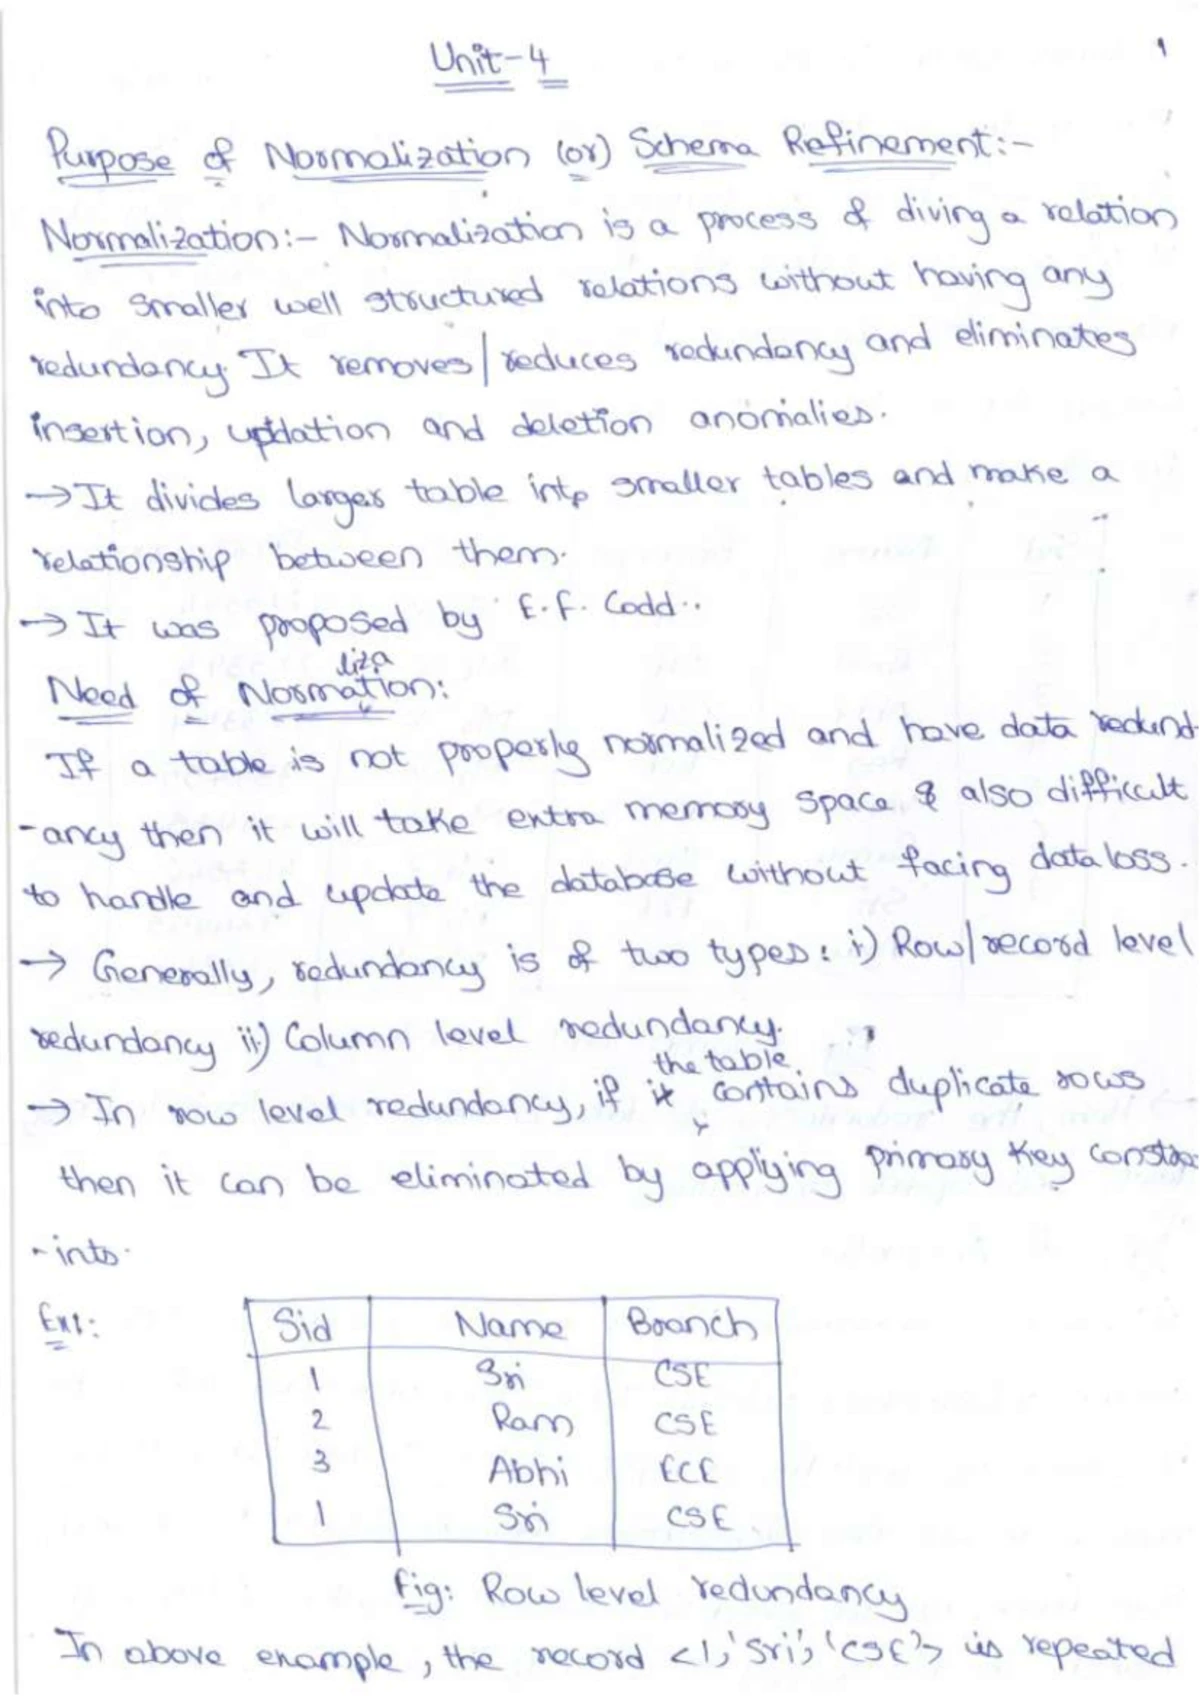 1
Unit-4
Purpose of Normalization (or) Schema Refinement:-
Normalization:- Normalization is a process of diving a relation
into smaller well structured relations without having any
redundancy. It removes/reduces redundancy and eliminates
insertion, updation and deletion anomalies.
→ It divides larger table into smaller tables and make a
relationship between them.
→ It was proposed by E.F. Codd..
Need of Normalization:
If a table is not properly normalized and have data redund-
-ancy then it will take extra memory space & also difficult
to handle and update the database without facing data loss.
→ Generally, redundancy is of two types: i) Row/record level
redundancy ii) Column level redundancy.
→ In row level redundancy, if the table contains duplicate rows
then it can be eliminated by applying primary key constra-
-ints.
Ex1:
Sid Name Branch
1 Sri CSE
2 Ram CSE
3 Abhi ECE
1 Sri CSE
Fig: Row level redundancy
In above example, the record <1,'Sri','CSE'> is repeated